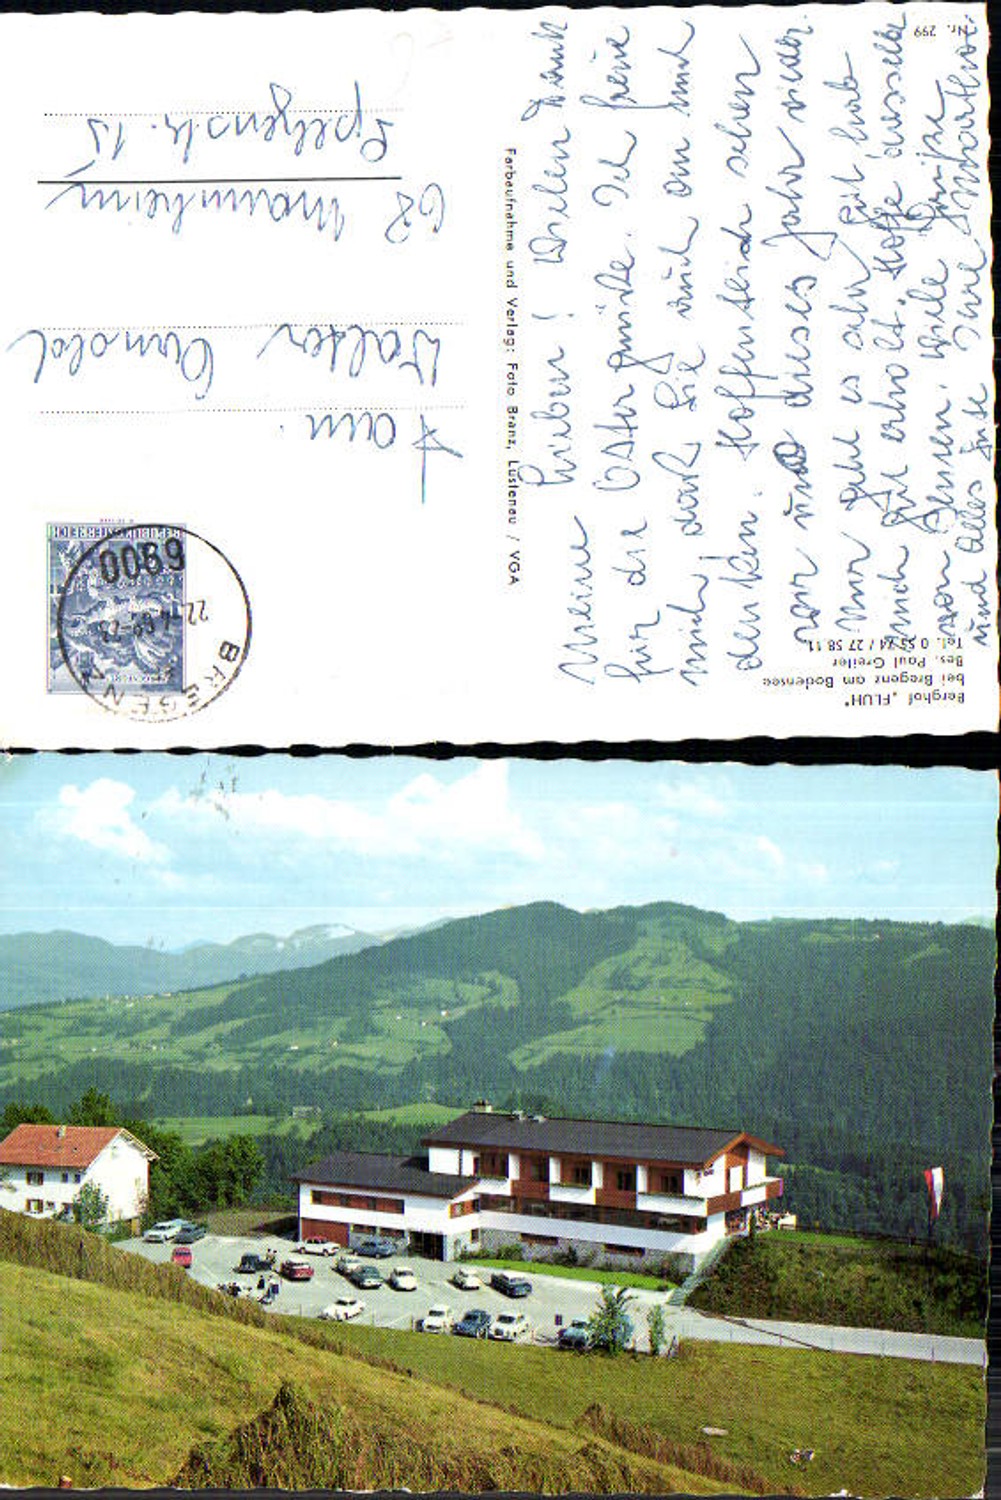 Berghof „FLUH"
bei Bregenz am Bodensee
Bes. Paul Greiler
Tel. 0 55 74 / 27 58 11
Nr. 299
Meine Lieben! Vielen Dank
für die Ostergrüße. Ich freue
mich, daß Sie auch an mich
denken. Hoffentlich sehen
wir uns dieses Jahr wieder.
Mir geht es sehr gut hab
mich gut erholt. Hoffe dasselbe
von Ihnen. Viele Grüße
und alles Gute Ihre
Farbaufnahme und Verlag: Foto Branz, Lustenau / VGA
REPUBLIK ÖSTERREICH
6900
BREGENZ
22.-4.69-23
Fam.
Walter Arnold
68 Mannheim
Spelzenstr. 15